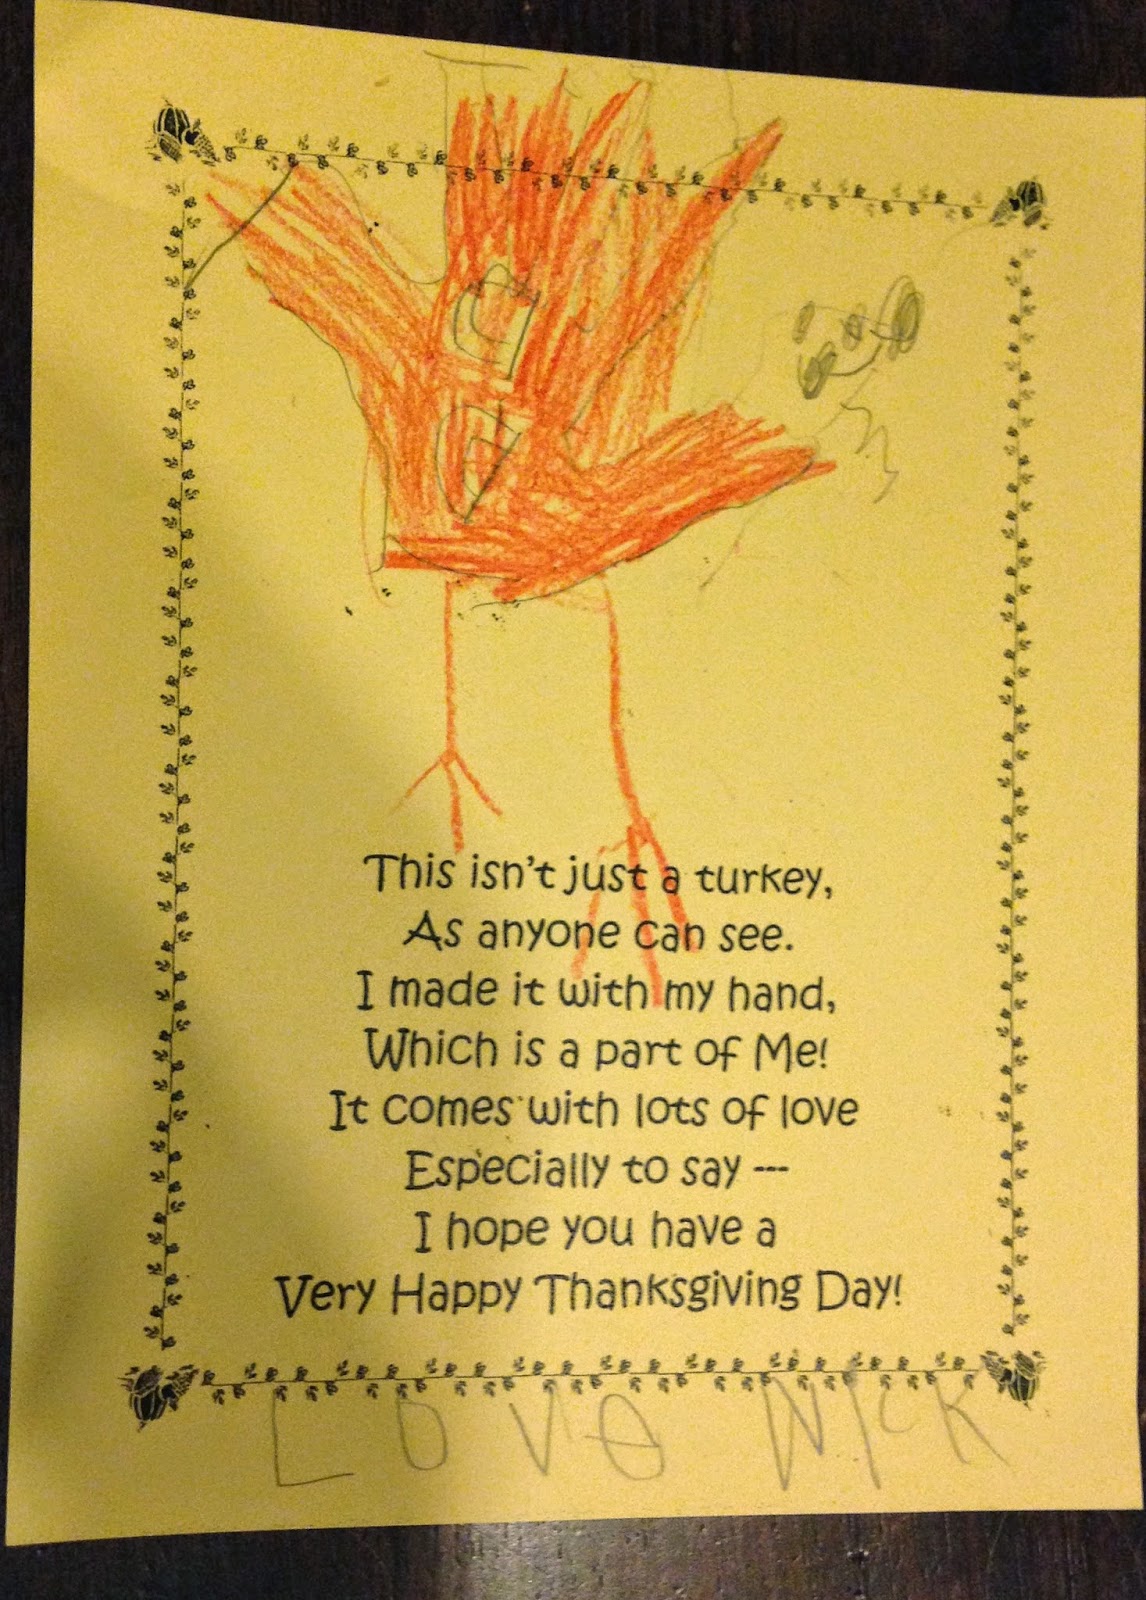 This isn't just a turkey,
As anyone can see.
I made it with my hand,
Which is a part of Me!
It comes with lots of love
Especially to say ---
I hope you have a
Very Happy Thanksgiving Day!
LOVe NICK